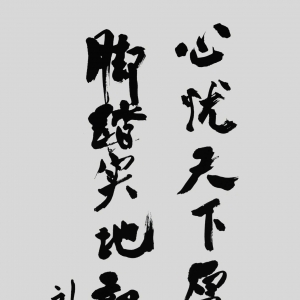 心忧天下
脚踏实地